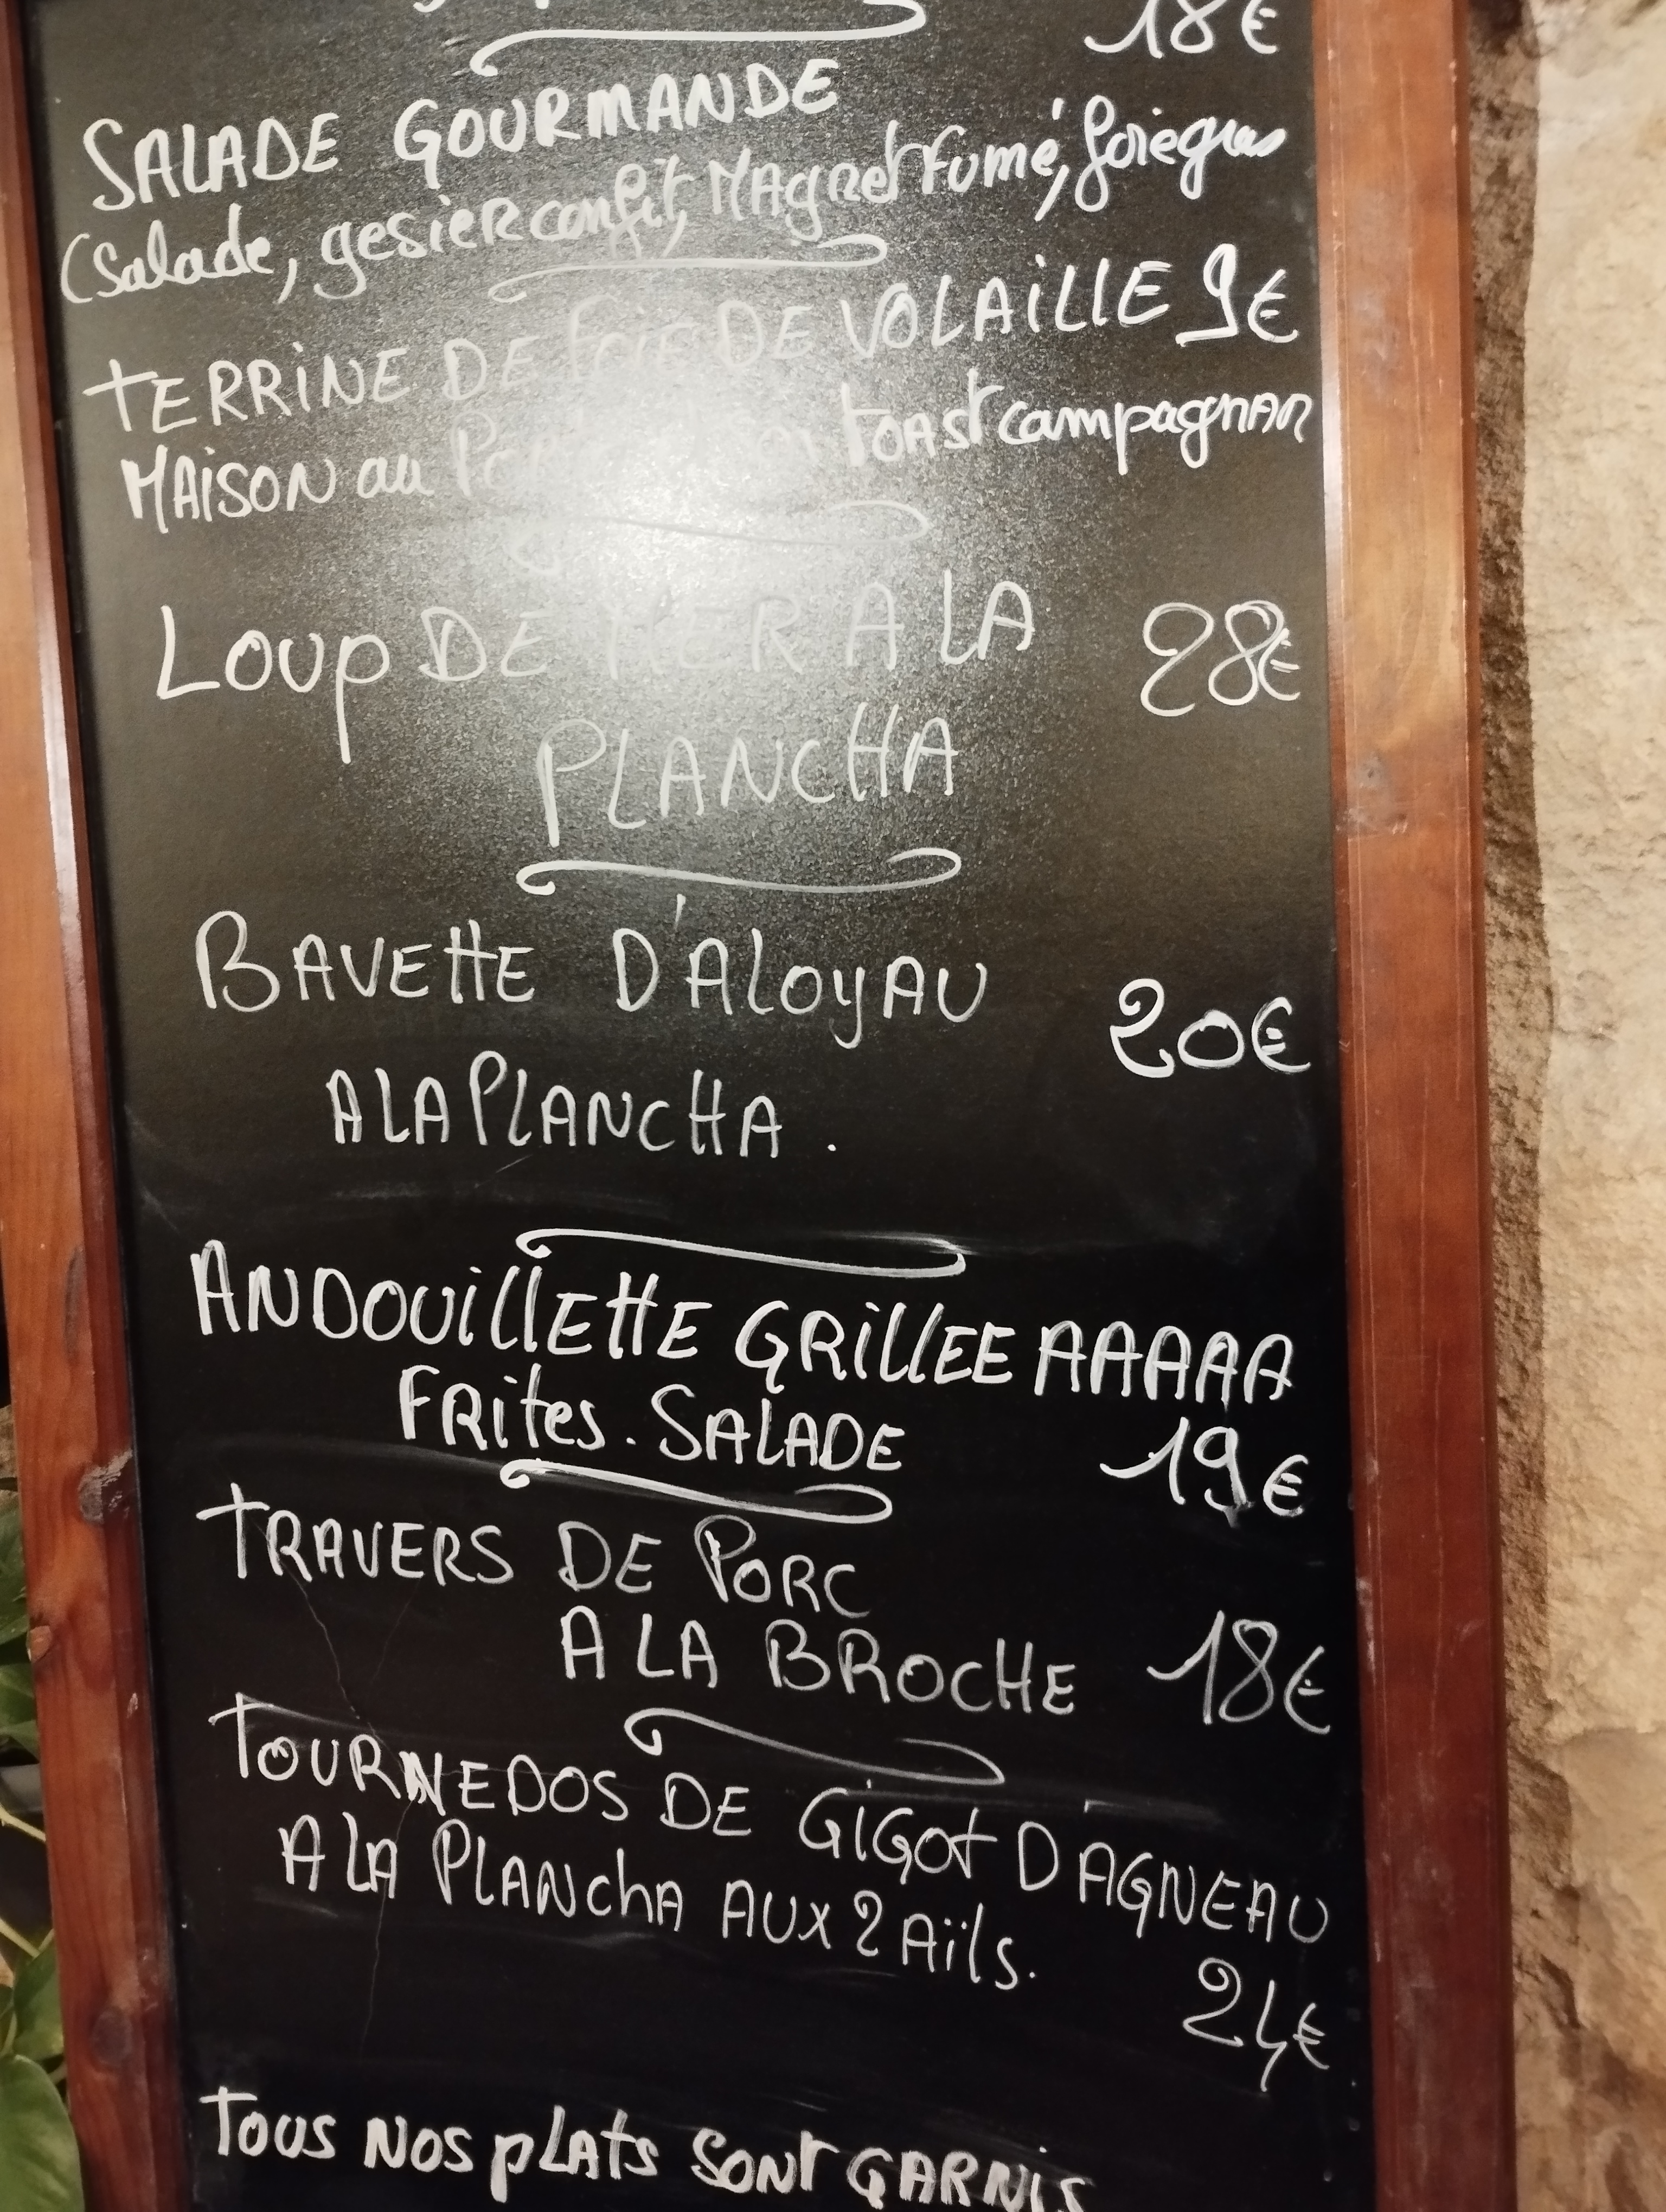 18€
SALADE GOURMANDE
(Salade, gesier confit, MAgret fumé, foie gras
TERRINE DE Foie DE VOLAILLE 9€
MAISON au toast campagnar
LOUP DE MER A LA 28€
PLANCHA
BAVETTE D'ALOYAU
20€
A LA PLANCHA.
ANDOUILLETTE GRILLEE AAAAA
FRites. SALADE 19€
TRAVERS DE PORC
A LA BROCHE 18€
TOURNEDOS DE GIGOT D'AGNEAU
A LA PLANChA AUX 2 Aïls.
24€
TOUS NOS PLATS SONT GARNIS